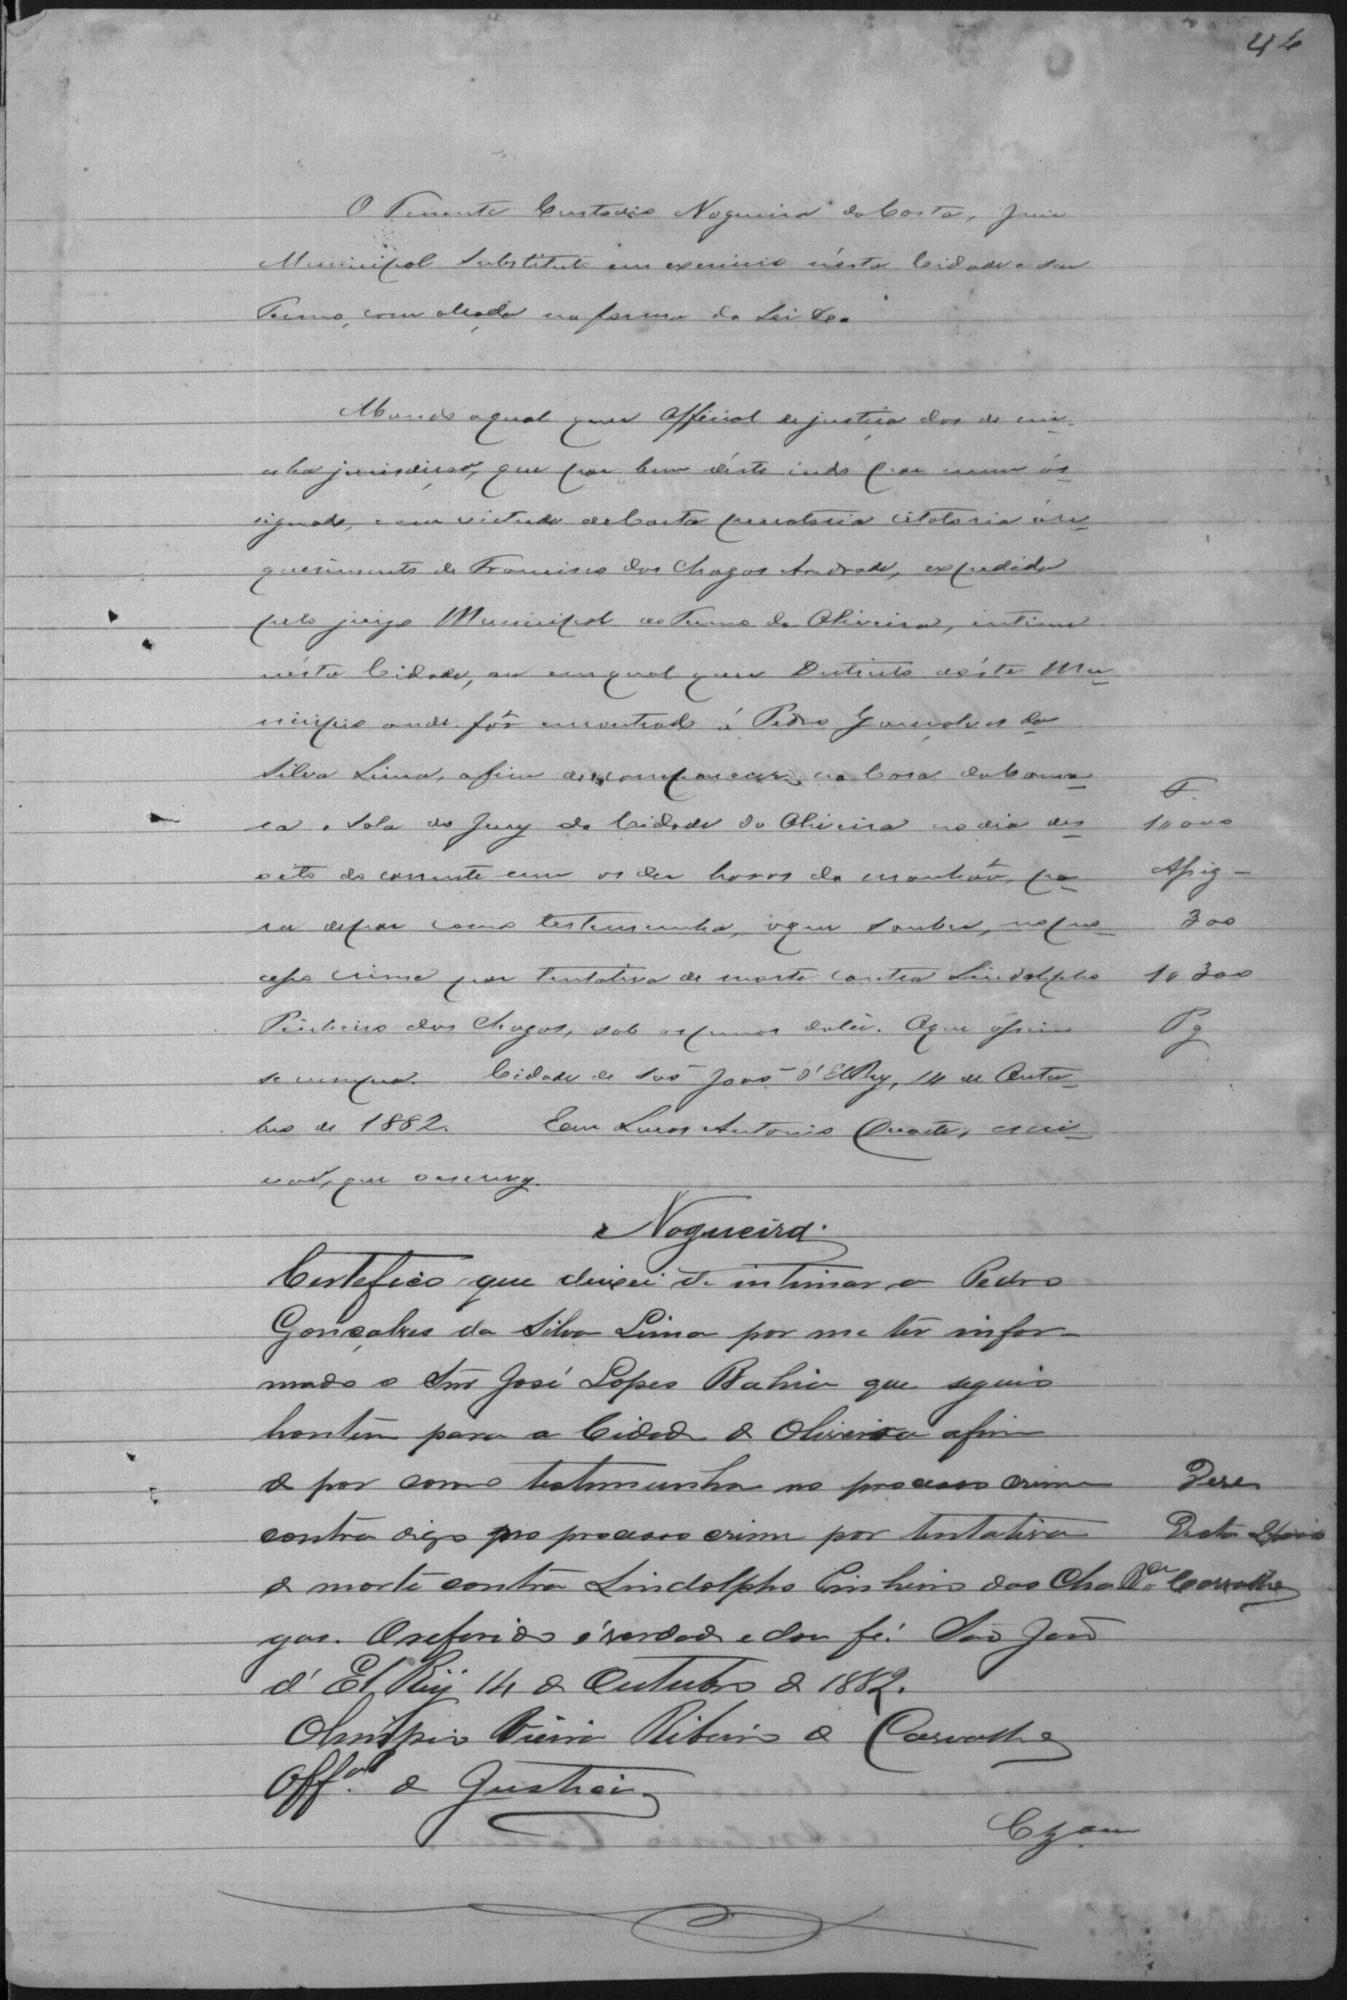 46
O Tenente Custodio Nogueira da Costa, Juiz
Municipal Substituto em exercicio n'ésta Cidade e seu
Termo, com alçada na forma da Lei &a.
Mando a qual quer Official de justiça dos de mi-
nha jurisdição, que por bem d'éste indo por mim as-
signado, e em virtude de Carta precatoria citatoria á re-
querimento de Francisco das Chagas Andrade, expedida
pelo juizo Municipal do Termo de Oliveira, intime
n'ésta Cidade, ou em qual quer Districto d'éste Mu-
nicipio onde fôr encontrado á Pedro Gonçalves da
Silva Lima, afim de comparecer na Casa da Cama-
ra e Sala do Jury da Cidade de Oliveira no dia des-
oito do corrente em as dez horas da manhã, pa-
ra depor como testemunha, o que souber, no pro-
cesso crime por tentativa de morte contra Lindolpho
Pinheiro das Chagas, sob as penas da lei. O que assim
se cumpra. Cidade de São João d'El Rey, 14 de Outu-
bro de 1882. Eu Lucas Antonio Duarte, escri-
vão, que o escrevy.
Nogueira.
1000
300
1300
Pg
Certefico que deixei de intimar a Pedro
Gonçalves da Silva Lima por me têr infor-
mado o Snr José Lopes Bahia que seguio
hontem para a Cidade de Oliveira afim
de por como testemunha no processo crime
contra digo no processo crime por tentativa
de morte contra Lindolpho Pinheiro das Cha
gas. O referido é verdade e dou fé. São João
d'El Rey 14 de Outubro de 1882.
Olimpio Vieira Ribeiro de Carvalho
Offal de Justiça
Carvalho